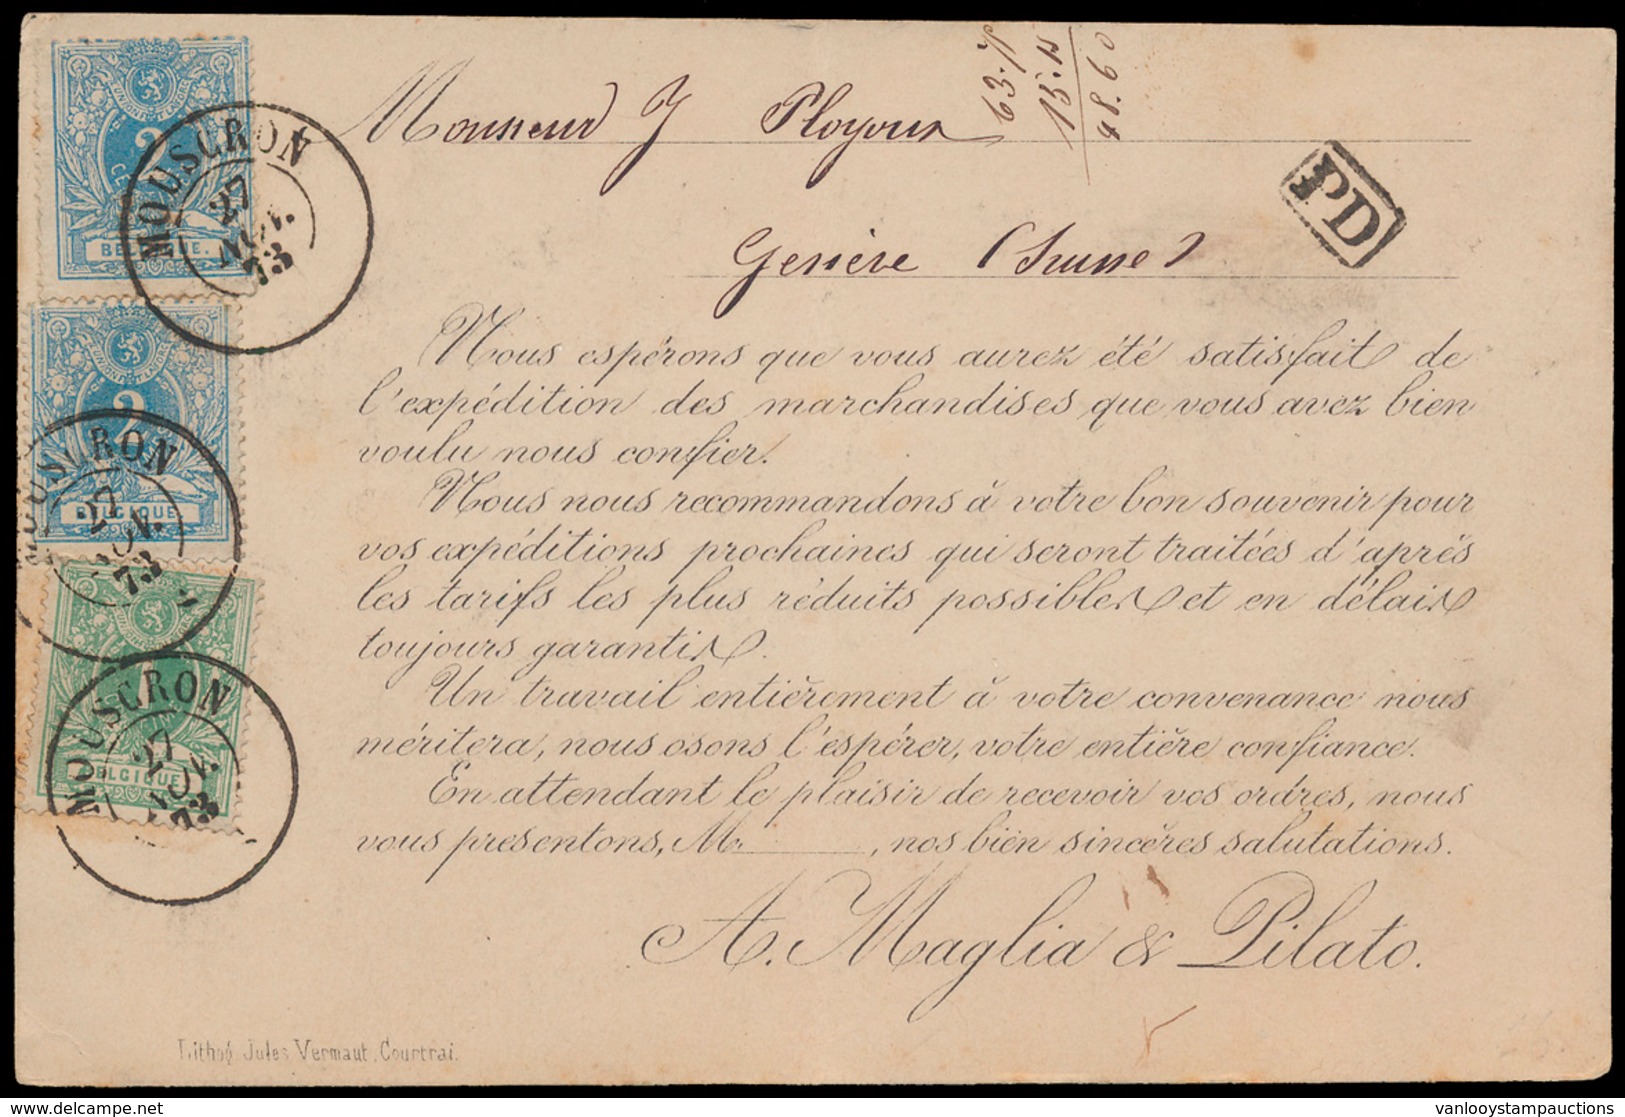 63.
13.15
48.60
Monsieur J Ployoux
PD
Genève (Suisse)
2
BELGIQUE.
MOUSCRON
27
NOV.
73
Nous espérons que vous aurez été satisfait de
l'expédition des marchandises que vous avez bien
voulu nous confier.
2
BELGIQUE
MOUSCRON
27
NOV.
73
Nous nous recommandons à votre bon souvenir pour
vos expéditions prochaines qui seront traitées d'après
les tarifs les plus réduits possibles et en délais
toujours garantis.
BELGIQUE
MOUSCRON
27
NOV.
73
Un travail entièrement à votre convenance nous
méritera, nous osons l'espérer, votre entière confiance.
En attendant le plaisir de recevoir vos ordres, nous
vous presentons, M. , nos bien sincères salutations.
A. Maglia & Pilato.
Lithog. Jules Vermaut, Courtrai.
vanlooystampauctions
© delcampe.net